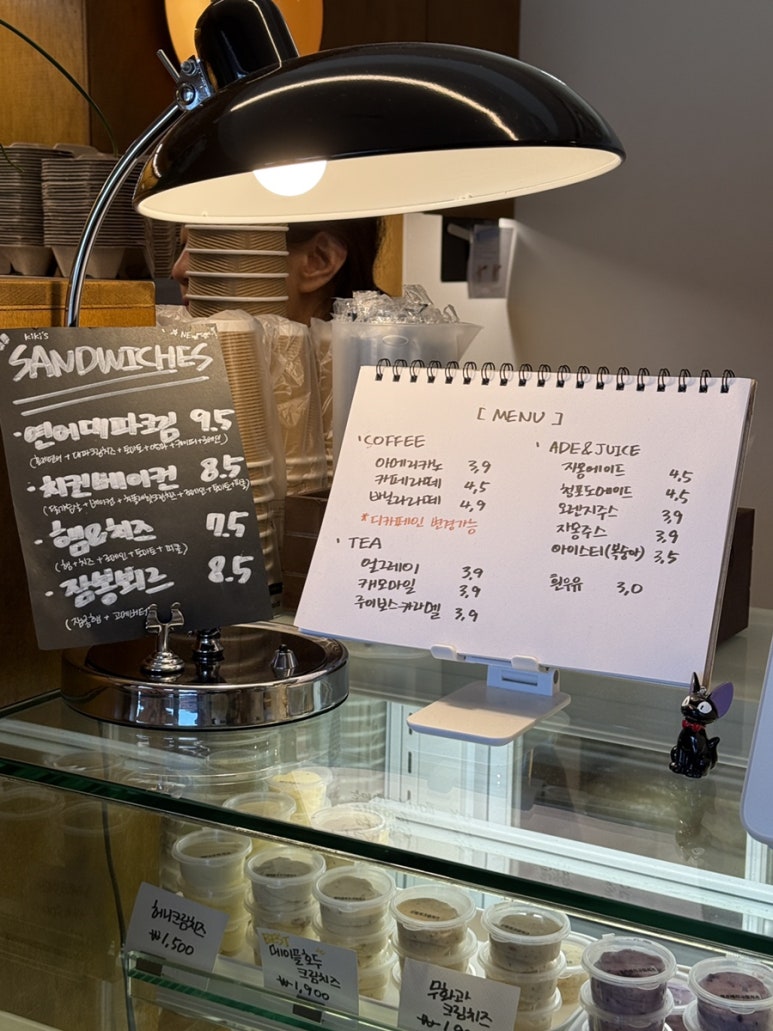 KIKI'S
NEW
SANDWICHES
· 연어대파크림 9.5
· 치킨베이컨 8.5
· 햄&치즈 7.5
(햄+치즈+로메인+토마토+피클)
· 잠봉뵈르 8.5
(잠봉햄+고메버터)
[ MENU ]
' COFFEE
아메리카노 3,9
카페라떼 4,5
바닐라라떼 4,9
*디카페인 변경가능
' TEA
얼그레이 3,9
캐모마일 3,9
루이보스카라멜 3,9
' ADE&JUICE
자몽에이드 4,5
청포도에이드 4,5
오렌지주스 3,9
자몽주스 3,9
아이스티(복숭아) 3,5
흰우유 3,0
허니크림치즈
₩1,500
BEST
메이플호두
크림치즈
₩1,900
무화과
크림치즈